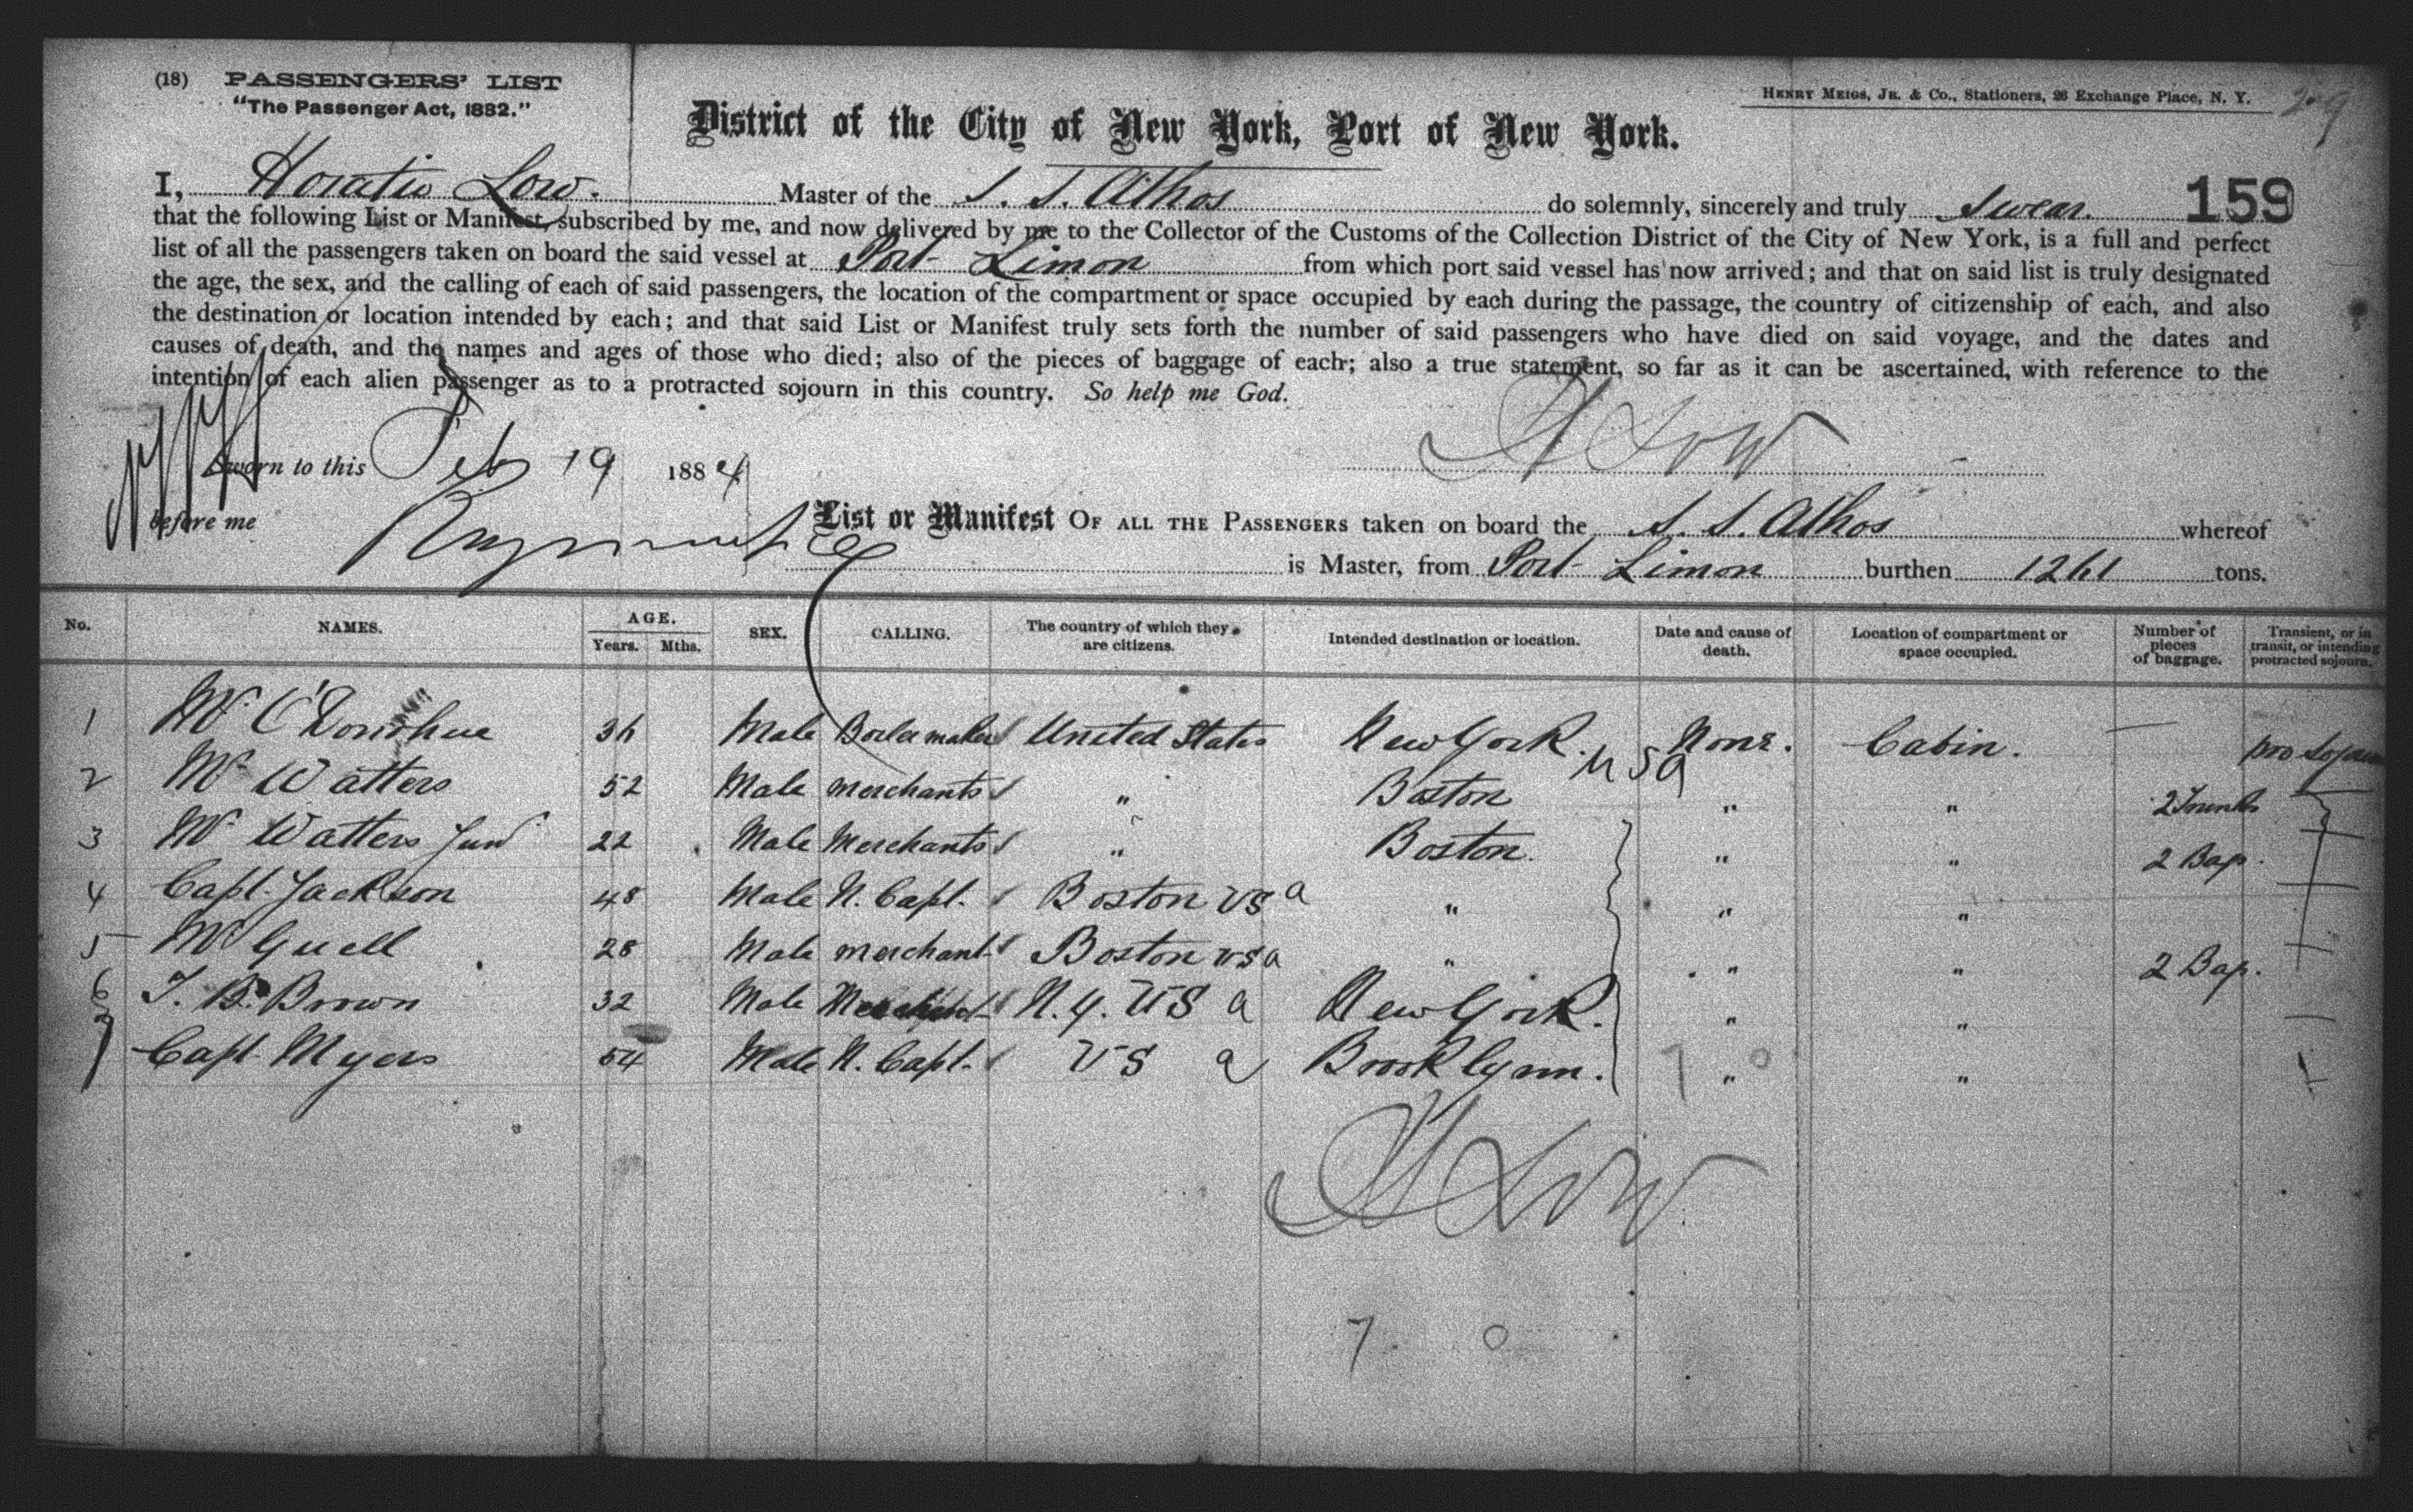 (18) PASSENGERS' LIST
"The Passenger Act, 1882."
HENRY MEIGS, JR. & CO., Stationers, 26 Exchange Place, N. Y.
District of the City of New York, Port of New York.
159
I, Horatio Low. Master of the S. S. Athos do solemnly, sincerely and truly Swear.
that the following List or Manifest, subscribed by me, and now delivered by me to the Collector of the Customs of the Collection District of the City of New York, is a full and perfect
list of all the passengers taken on board the said vessel at Port Limon from which port said vessel has now arrived; and that on said list is truly designated
the age, the sex, and the calling of each of said passengers, the location of the compartment or space occupied by each during the passage, the country of citizenship of each, and also
the destination or location intended by each; and that said List or Manifest truly sets forth the number of said passengers who have died on said voyage, and the dates and
causes of death, and the names and ages of those who died; also of the pieces of baggage of each; also a true statement, so far as it can be ascertained, with reference to the
intention of each alien passenger as to a protracted sojourn in this country. So help me God.
Sworn to this Feb 19 1884
H Low
before me
List or Manifest OF ALL THE PASSENGERS taken on board the S. S. Athos whereof
is Master, from Port Limon burthen 1261 tons.
No. NAMES. AGE. Years. Mths. SEX. CALLING. The country of which they are citizens. Intended destination or location. Date and cause of death. Location of compartment or space occupied. Number of pieces of baggage. Transient, or in transit, or intending protracted sojourn.
1 Mr O'Donohue 36 Male Boilermaker United States New York. USA None. Cabin. — pro Sojourn
2 Mr Watters 52 Male merchants " Boston " " 2 Trunks
3 Mr Watters Junr 22 Male Merchants " Boston. " " 2 Bags.
4 Capt. Jackson 48 Male N. Capt. Boston US a " " "
5 Mr Guell 28 Male merchant Boston usa " " " 2 Bags.
6 T. B. Brown 32 Male Merchant N. Y. US a New York. " "
7 Capt Myers 54 Male N. Capt. US a Brooklynn. " "
7 0
H Low
7. 0